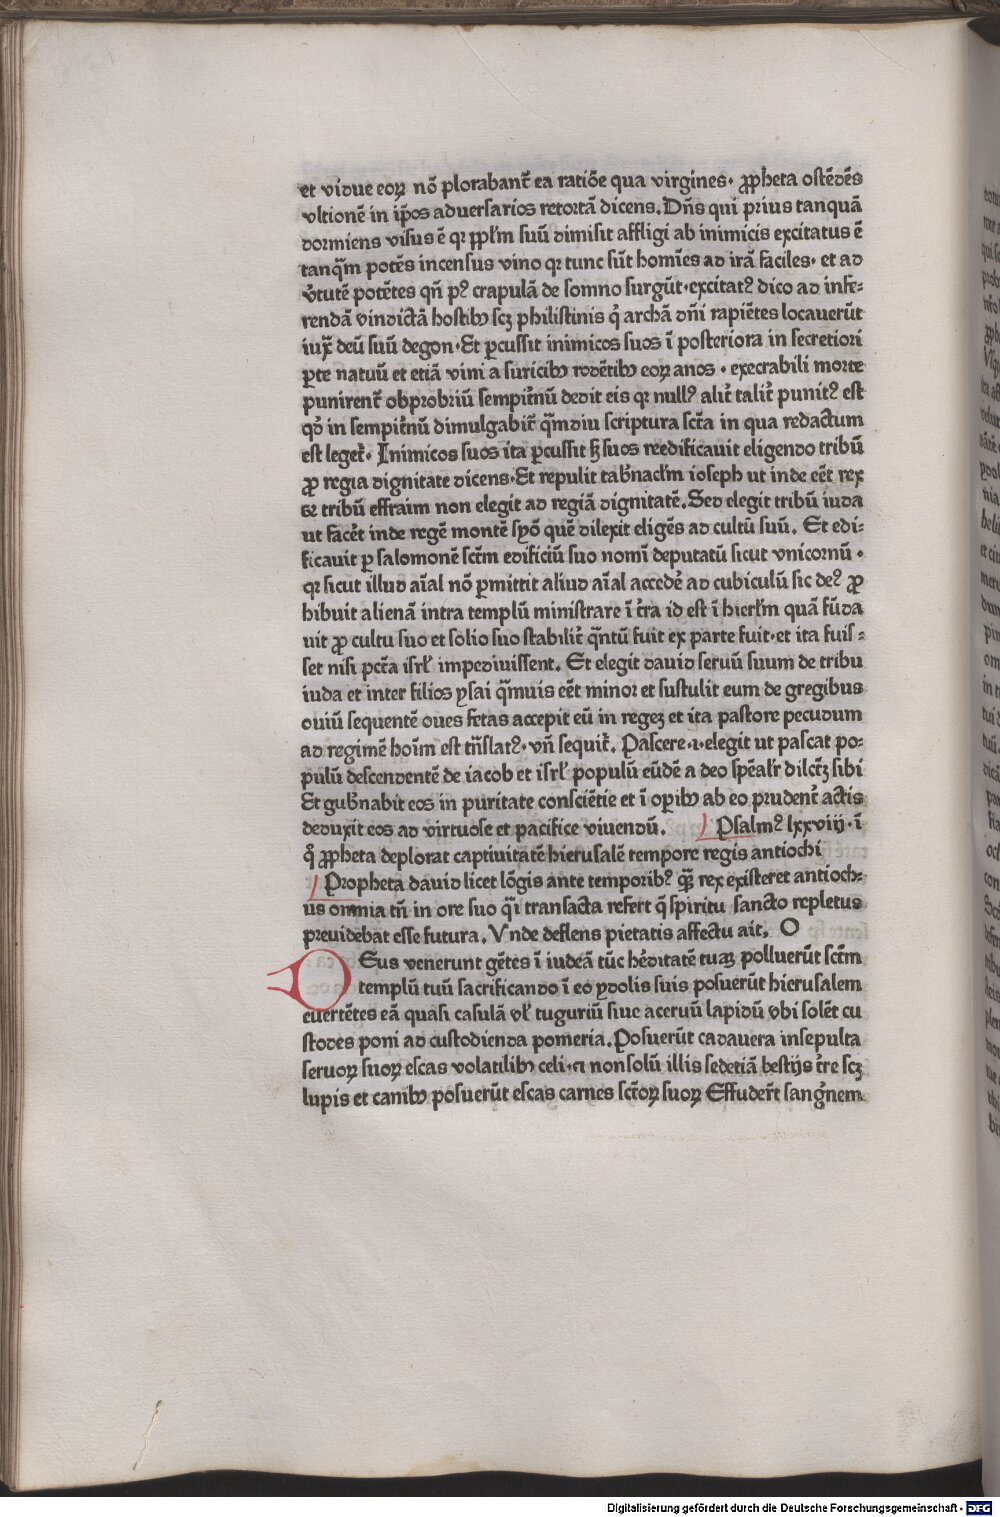 et vidue eoꝝ nō plorabant᷑ ea ratiōe qua virgines· ꝓpheta ostēdēs
vltionē in ip̄os aduersarios retortā dicens. Dn̄s qui prius tanquā
dormiens visus ē qꝛ ppl̄m suū dimisit affligi ab inimicis excitatus ē
tanqm̄ potēs incensus vino qꝛ tunc sūt homīes ad irā faciles· et ad
v̓tutē potētes qn̄ pꝰ crapulā de somno surgūt·excitatꝰ dico ad infe⸗
rendā vindictā hostibꝫ scꝫ philistinis q̓ archā dn̄i rapiētes locauerūt
iux̄ deū suū degon·Et ꝑcussit inimicos suos ī posteriora in secretiori
ꝑte natuū et etiā vini a suricibꝫ rodētibꝫ eoꝝ anos · execrabili morte
punirent᷑ obprobriū sempit̓nū dedit eis qꝛ nullꝰ alit̓ talit̓ punitꝰ est
qđ in sempit̓nū diuulgabit᷑ qm̄diu scriptura sct̄a in qua redactum
est leget᷑· Inimicos suos ita ꝑcussit sꝫ suos reedificauit eligendo tribū
ꝓ regia dignitate dicens·Et repulit tab̓nacl̄m ioseph ut inde eēt rex
⁊ tribū effraim non elegit ad regiā dignitatē. Sed elegit tribū iuda
ut facēt inde regē montē syō quē dilexit eligēs ad cultū suū. Et edi⸗
ficauit ꝑ salomonē sct̄m edificiū suo nomī deputatū sicut vnicornū ·
qꝛ sicut illud aīal nō ꝑmittit aliud aīal accede̓ ad cubiculū sic deꝰ ꝓ
hibuit alienā intra templū ministrare ī t̓ra id est ī hierl̄m quā fūda
uit ꝓ cultu suo et solio suo stabilit̓ qn̄tū fuit ex parte fuit·et ita fuis ⸗
set nisi pct̄a isrl̓ impediuissent. Et elegit dauid seruū suum de tribu
iuda et inter filios ysai qm̄uis eēt minor et sustulit eum de gregibus
ouiū sequentē oues fetas accepit eū in regeꝫ et ita pastore pecudum
ad regimē hoīm est tn̄slatꝰ· vn̄ sequit᷑. Pascere·i·elegit ut pascat po⸗
pulū descendentē de iacob et isrl̓ populū eūdē a deo spēalr̄ dilctꝫ sibi
Et gub̓nabit eos in puritate consciētie et ī oꝑibꝫ ab eo prudent᷑ actis
deduxit eos ad virtuose et pacifice viuendū. Psalmꝰ lxxviij· ī
q̓ ꝓpheta deplorat captiuitatē hierusalē tempore regis antiochi
Propheta dauid licet lōgis ante temporibꝰ qꝫ rex existeret antioch⸗
us omnia tn̄ in ore suo qi̓ transacta refert q̄ spiritu sancto repletus
preuidebat esse futura. Vnde deflens pietatis affectu ait. O
DEus venerunt gētes ī iudeā tūc he̓ditatē tuaꝫ polluerūt sct̄m
templū tuū sacrificando ī eo ydolis suis posuerūt hierusalem
euertētes eā quasi casulā vl̓ tuguriū siue aceruū lapidū vbi solēt cu
stodes poni ad custodienda pomeria. Posuerūt cadauera insepulta
seruoꝝ suoꝝ escas volatilibꝫ celi·⁊ nonsolū illis sedetiā bestijs t̓re scꝫ
lupis et canibꝫ posuerūt escas carnes sct̄oꝝ suoꝝ Effuder̄t sang̓nem
Digitalisierung gefördert durch die Deutsche Forschungsgemeinschaft - DFG